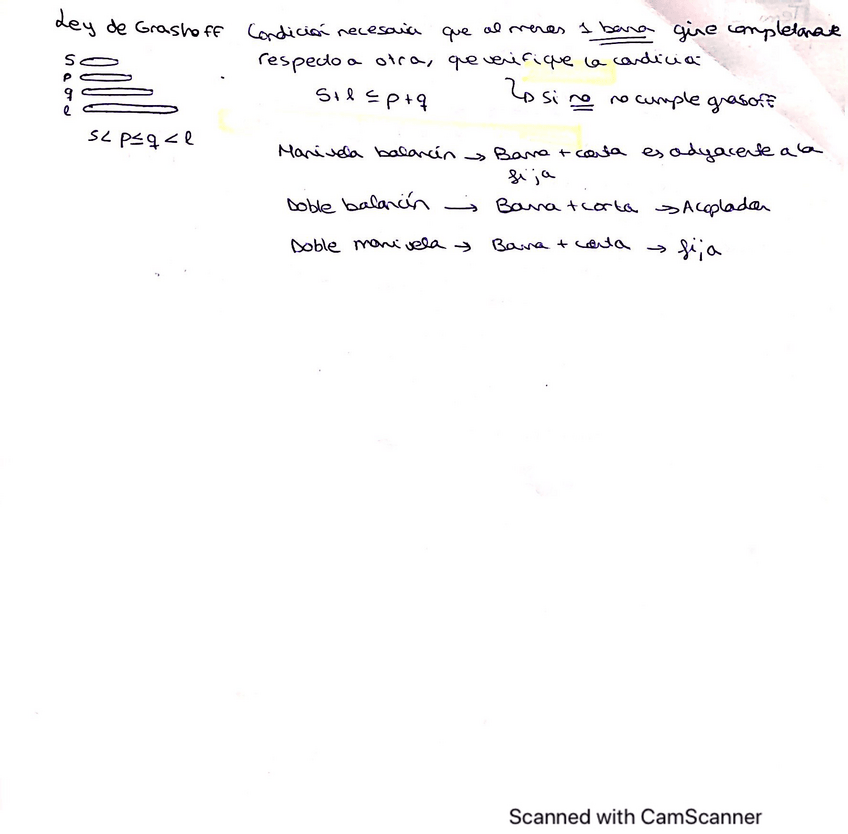 Ley de Grashoff Condición necesaria que al menos 1 barra gire completamente
respecto a otra, que verifique la condición:
s
p
q
l
s+l ≤ p+q ↳ si no no cumple grasoff
s< p≤q < l
Manivela balancín → Barra + corta es adyacente a la
fija
Doble balancín → Barra + corta → Acoplador
Doble manivela → Barra + corta → fija
Scanned with CamScanner